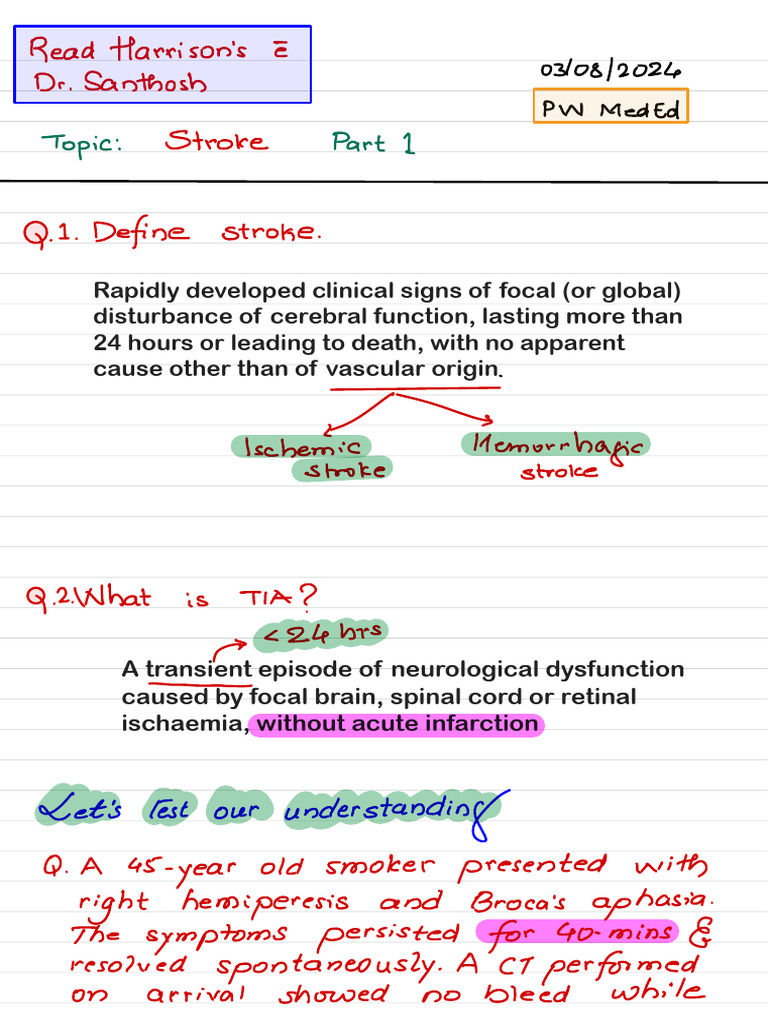 Read Harrison's c̄
Dr. Santhosh
03/08/2024
PW MedEd
Topic: Stroke Part 1
Q.1. Define stroke.
Rapidly developed clinical signs of focal (or global)
disturbance of cerebral function, lasting more than
24 hours or leading to death, with no apparent
cause other than of vascular origin.
Ischemic
stroke
Hemorrhagic
stroke
Q.2. What is TIA?
<24 hrs
A transient episode of neurological dysfunction
caused by focal brain, spinal cord or retinal
ischaemia, without acute infarction
Let's Test our understanding
Q. A 45-year old smoker presented with
right hemiperesis and Broca's aphasia.
The symptoms persisted for 40-mins &
resolved spontaneously. A CT performed
on arrival showed no bleed while